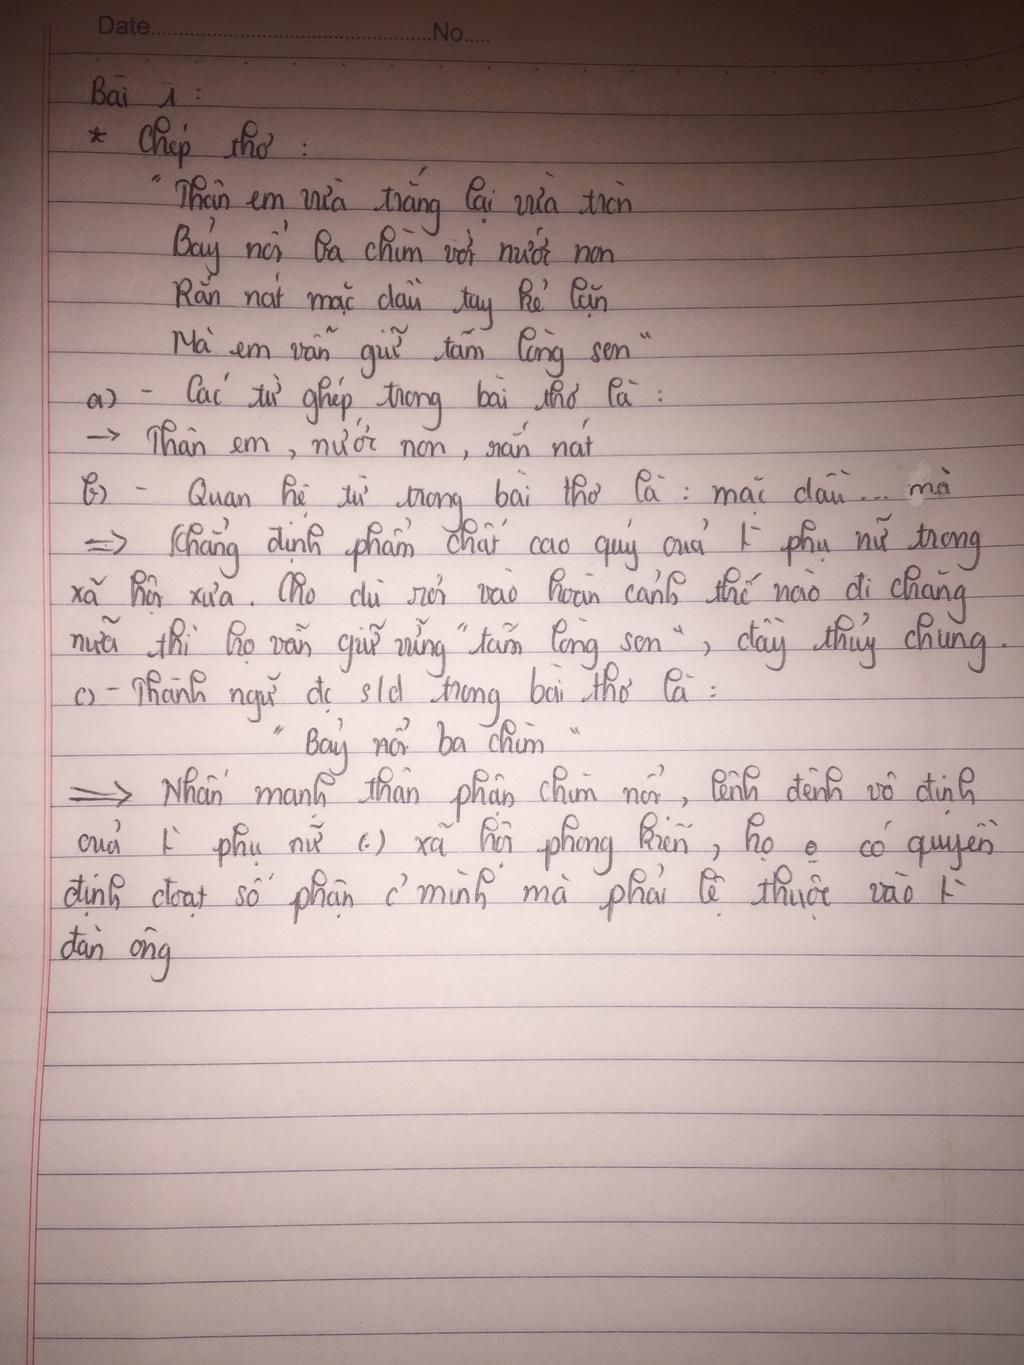 Date..........No.....
Bài 1 :
* Chép thơ :
"Thân em vừa trắng lại vừa tròn
Bảy nổi ba chìm với nước non
Rắn nát mặc dầu tay kẻ lặn
Mà em vẫn giữ tấm lòng son"
a) - Các từ ghép trong bài thơ là :
→ Thân em, nước non, rắn nát
b) - Quan hệ từ trong bài thơ là : mặc dầu ... mà
=> Khẳng định phẩm chất cao quý của t² phụ nữ trong
xã hội xưa. Cho dù rơi vào hoàn cảnh thế nào đi chăng
nữa thì họ vẫn giữ vững "tấm lòng son", đầy thủy chung.
c) - Thành ngữ đc s/d trong bài thơ là :
"Bảy nổi ba chìm"
=> Nhấn mạnh thân phận chìm nổi, lênh đênh vô định
của phụ nữ (.) xã hội phong kiến, họ có quyền
định đoạt số phận c' mình mà phải lệ thuộc vào
đàn ông